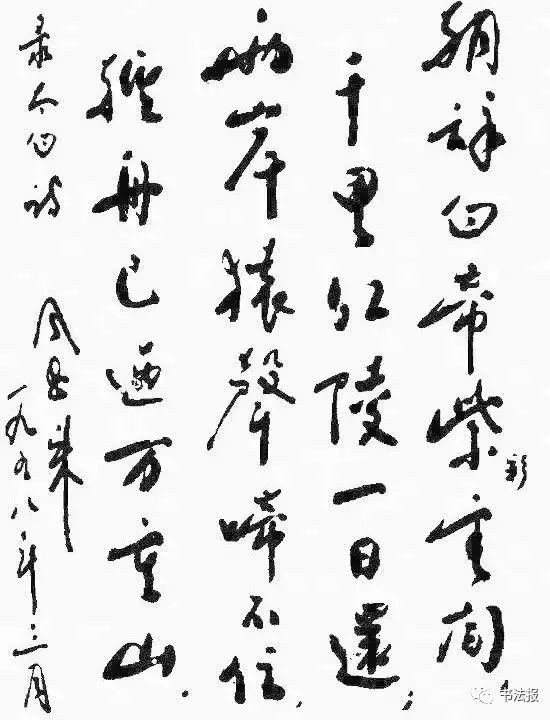 朝辞白帝紫雲间,
彩
千里江陵一日還;
兩岸猿聲啼不住,
輕舟已過万重山.
录太白诗
周恩来
一九五八年三月
书法报